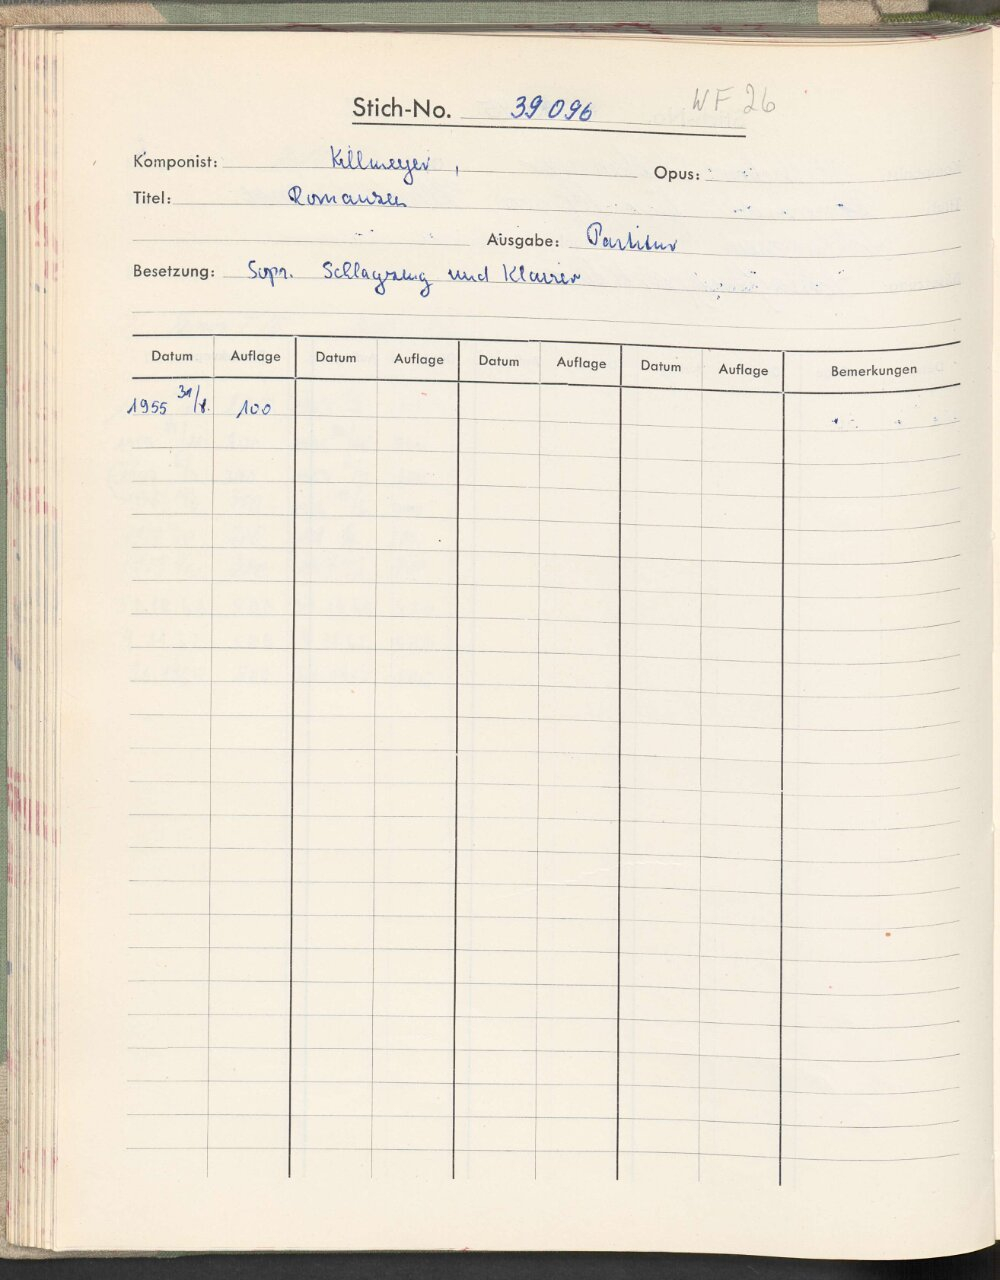 Stich-No. 39096 WF 26
Komponist: Killmeyer, Opus:
Titel: Romanzen
Ausgabe: Partitur
Besetzung: Sopr. Schlagzeug und Klavier
Datum Auflage Datum Auflage Datum Auflage Datum Auflage Bemerkungen
1955 31/8. 100